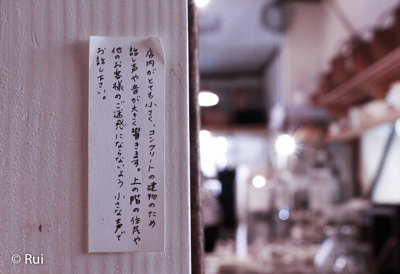 店内がとても小さく、コンクリートの建物のため
話し声や音が大きく響きます。上の階の住民や
他のお客様のご迷惑にならないよう 小さな声で
お話し下さい。
© Rui